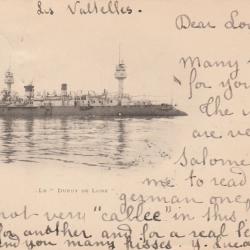 Les Valtelles.
Dear Lou
Many
for yo
The v
are ve
Salome
me to read
german one,
LE " DUPUY DE LOME "
not very "callée" in this,
for another and for a real le
and you many kisses